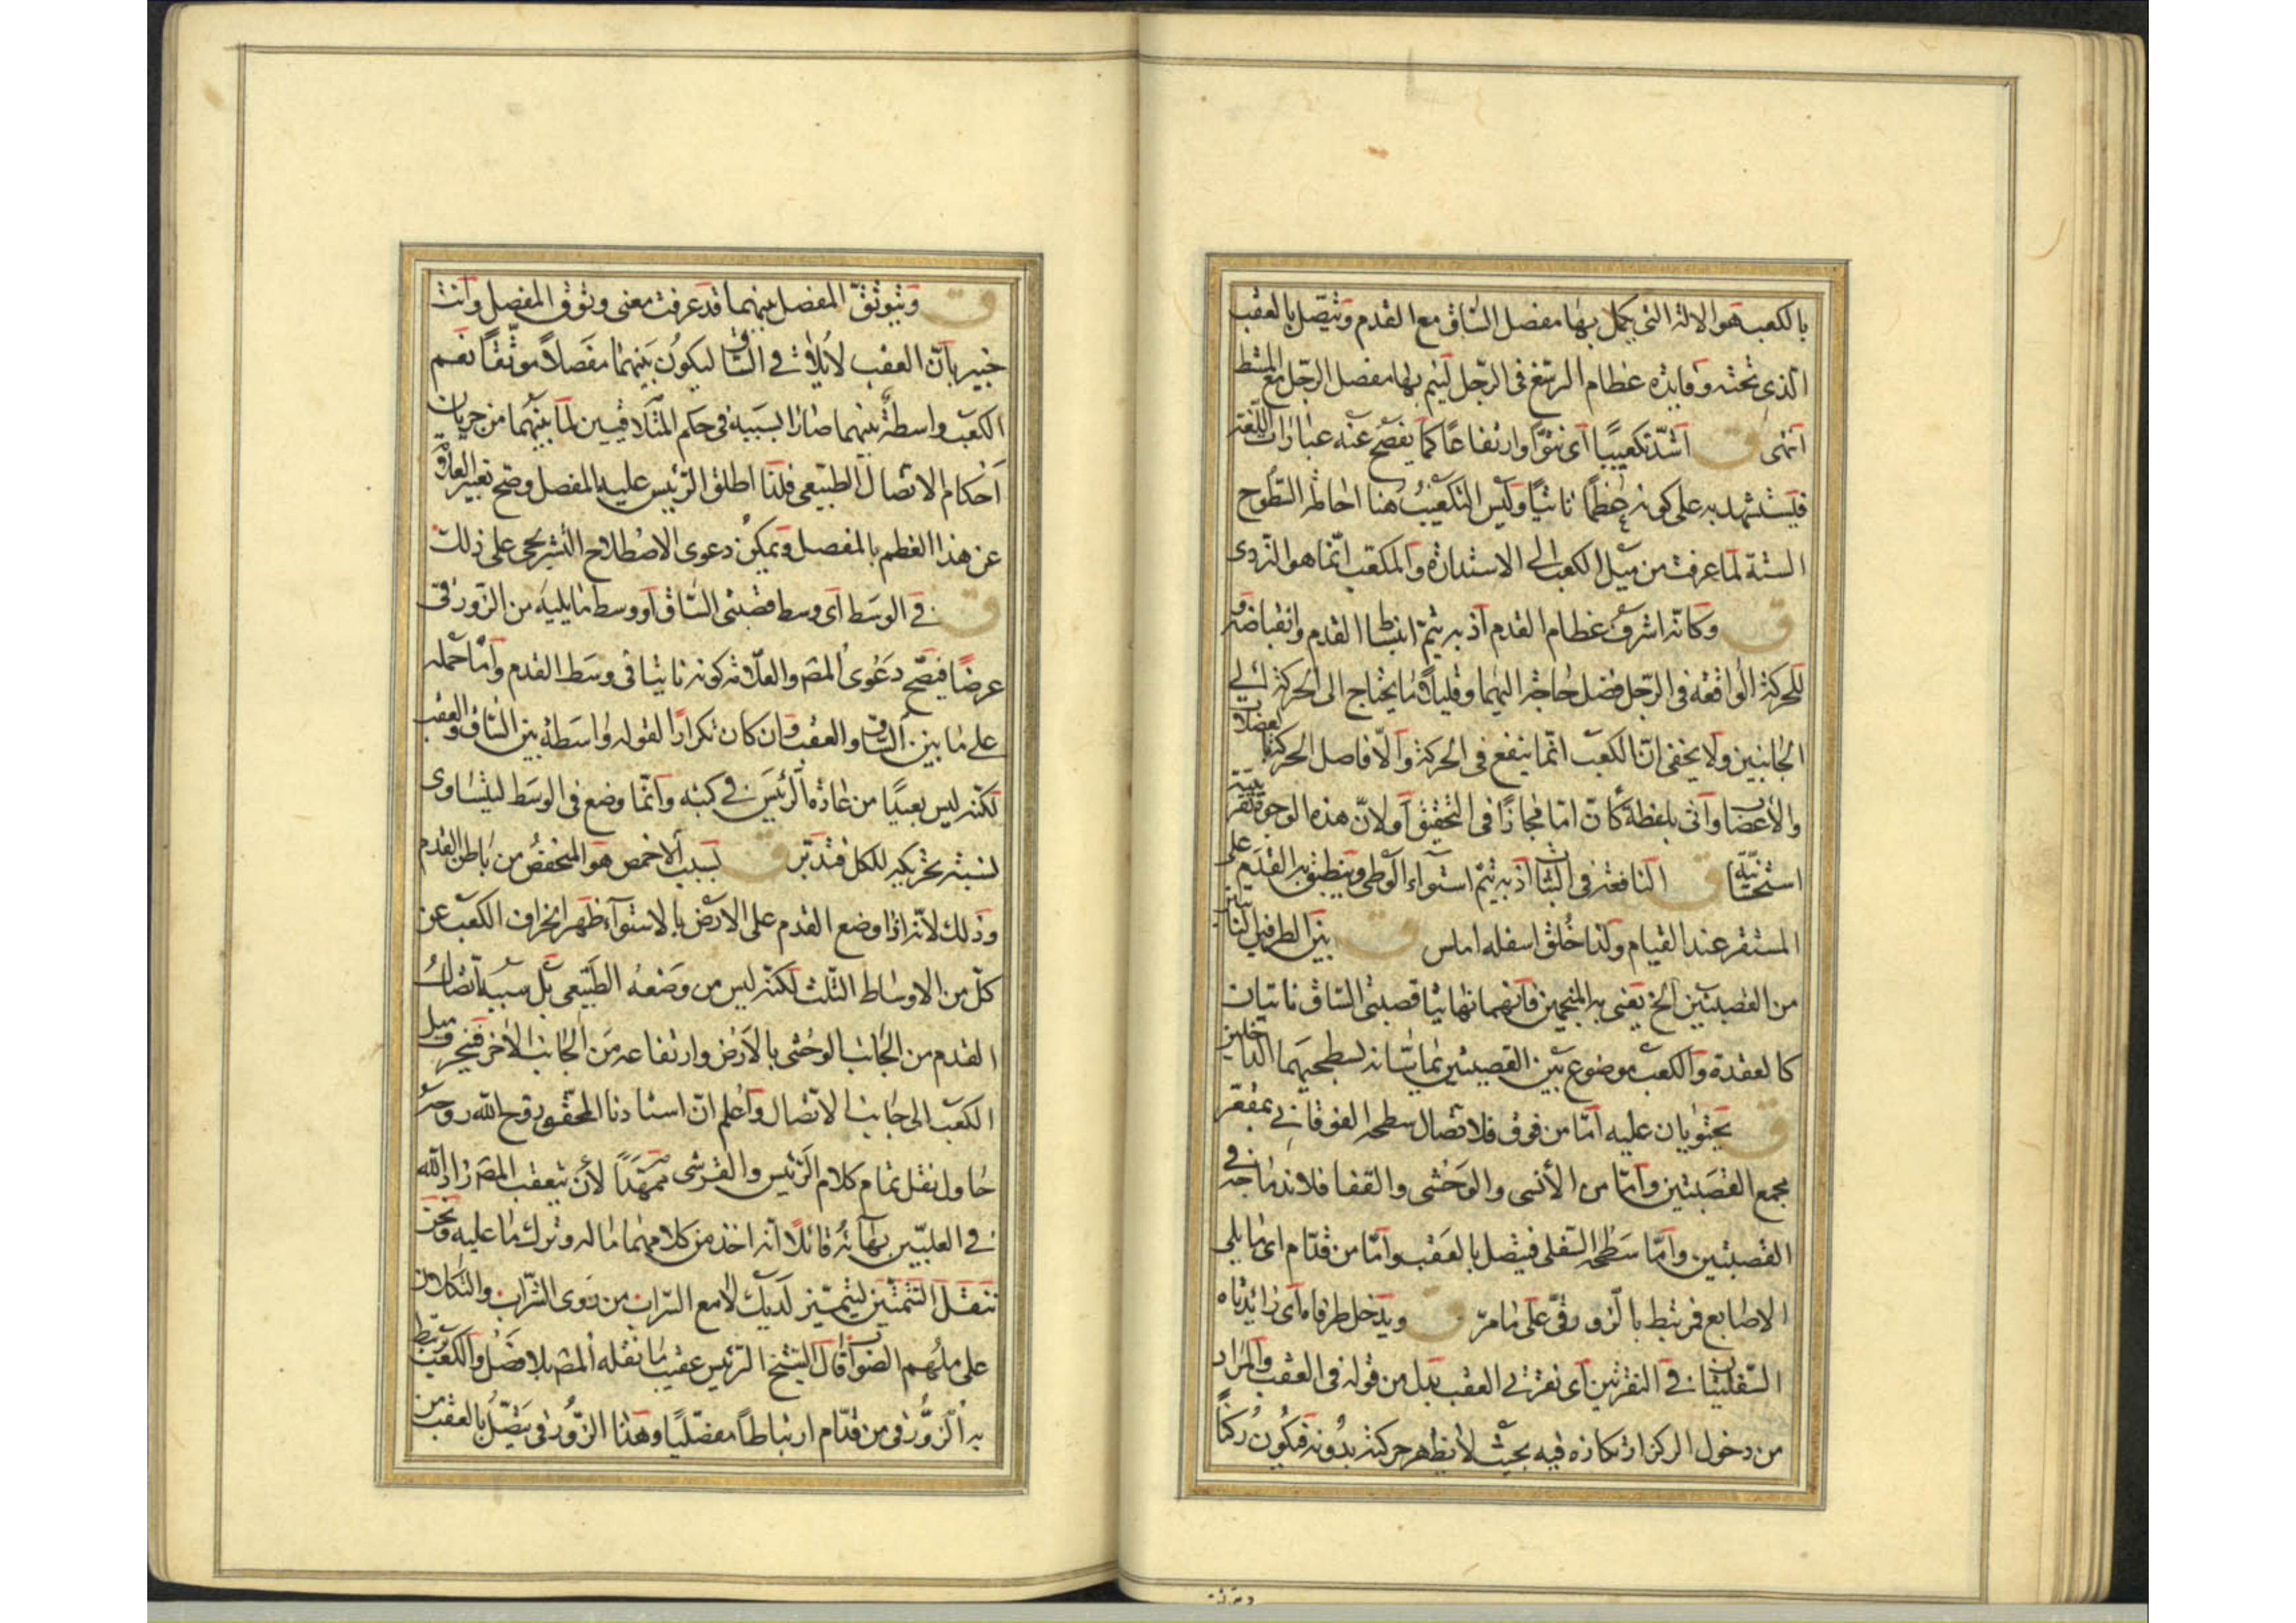 بالكعب هو الالة التي يكمل بها مفصل الساق مع القدم ويتصل بالعقب
الذى تحته وفايدة عظام الرسغ فى الرجل ليتم بها مفصل الرجل مع المشط
انتهى ق اشد تكعيبًا اى نتوًّا وارتفاعًا كما يفصح عنه عبارات اللغة
فيستشهد به على كونه عظمًا ناتيًا وليس التكعيب هنا احاطة السطوح
الستة لما عرفت من ميل الكعب الى الاستدارة والمكعب انما هو النردى
ق وكانه اشرف عظام القدم اذ به يتم انبساط القدم وانقباضه و
للحركة الواقعة فى الرجل فضل حاجة اليهما وقليلًا ما يحتاج الى الحركة الى
الجانبين ولا يخفى ان الكعب انما ينفع فى الحركة والا فاصل الحركة بالعضلات
والاعصاب واتى بلفظة كان اما مجازًا فى التحقيق او لان هذه الوجوه تقريبية
استحسانية ق النافعة فى الثبات اذ به يتم استواء الوطى وينطبق به القدم على
المستقر عند القيام ولذا خلق اسفله املس ق بين الطرفين الناتيين
من القصبتين الخ يعنى به المنجمين فانهما نهايتا قصبتى الساق ناتيتان
كالعقدة والكعب موضوع بين القصبتين تماسانه بسطحيهما الداخلين
ق يحتويان عليه اما من فوق فلاتصال سطحه الفوقانى بمقعر
مجمع القصبتين واما من الأنسى والوحشى والقفا فلاندماجه فى
القصبتين واما سطحه السفلى فيتصل بالعقب واما من قدام اى ما يلى
الاصابع فمرتبط بالزورقى على ما مرّ ق ويدخل طرفاه اى زائدتاه
السفليتان فى النقرتين اى نقرتى العقب بدل من قوله فى العقب والمراد
من دخول الركز ارتكازه فيه بحيث لا يظهر حركته بدونه فيكون ركنًا
ق ويتوثق المفصل بينهما قد عرفت معنى وثوق المفصل وانت
خبير بان العقب لا يلاقى الساق ليكون بينهما مفصلًا موثقًا نعم
الكعب واسطة بينهما صارا بسببية فى حكم المتلاقيين لما بينهما من جريان
احكام الاتصال الطبيعى فلذا اطلق الرئيس عليه المفصل وصح تعبير العلامة
عن هذا العظم بالمفصل ويمكن دعوى الاصطلاح التشريحى على ذلك
ق فى الوسط اى وسط قصبتى الساق او وسط ما يليه من الزورقى
عرضًا فيصح دعوى المصـ والعلامة كونه ناتيا فى وسط القدم واما حمله
على ما بين الساق والعقب وان كان تكرارًا لقوله واسطة بين الساق والعقب
لكنه ليس بعيدًا من عادة الرئيس فى كتبه وانما وضع فى الوسط ليتساوى
نسبة تحريكه للكل فتدبر ق بسبب الاخمص هو المنخفض من باطن القدم
وذلك لانه اذا وضع القدم على الارض بالاستواء ظهر انحراف الكعب عن
كل من الاوساط الثلث لكنه ليس من وضعه الطبيعى بل سببه اتصال
القدم من الجانب الوحشى بالارض وارتفاعه من الجانب الاخر فينحرف ميل
الكعب الى جانب الاتصال واعلم ان استادنا المحقق روح الله روحه
حاول نقل تمام كلام الرئيس والقرشى ممهدًا لان يتعقب المصـ زاد الله
فى العليين بهائه قائلًا انه اخذ من كلامهما ما له وترك ما عليه ونحن
ننقل التتمتين ليتميز لديك لامع السراب من روى الشراب والتكلان
على ملهم الصواب قال الشيخ الرئيس عقيب ما نقله المصـ بلا فصل والكعب يرتبط
به الزورقى من قدام ارتباطًا مفصليًا وهذا الزورقى يتصل بالعقب من